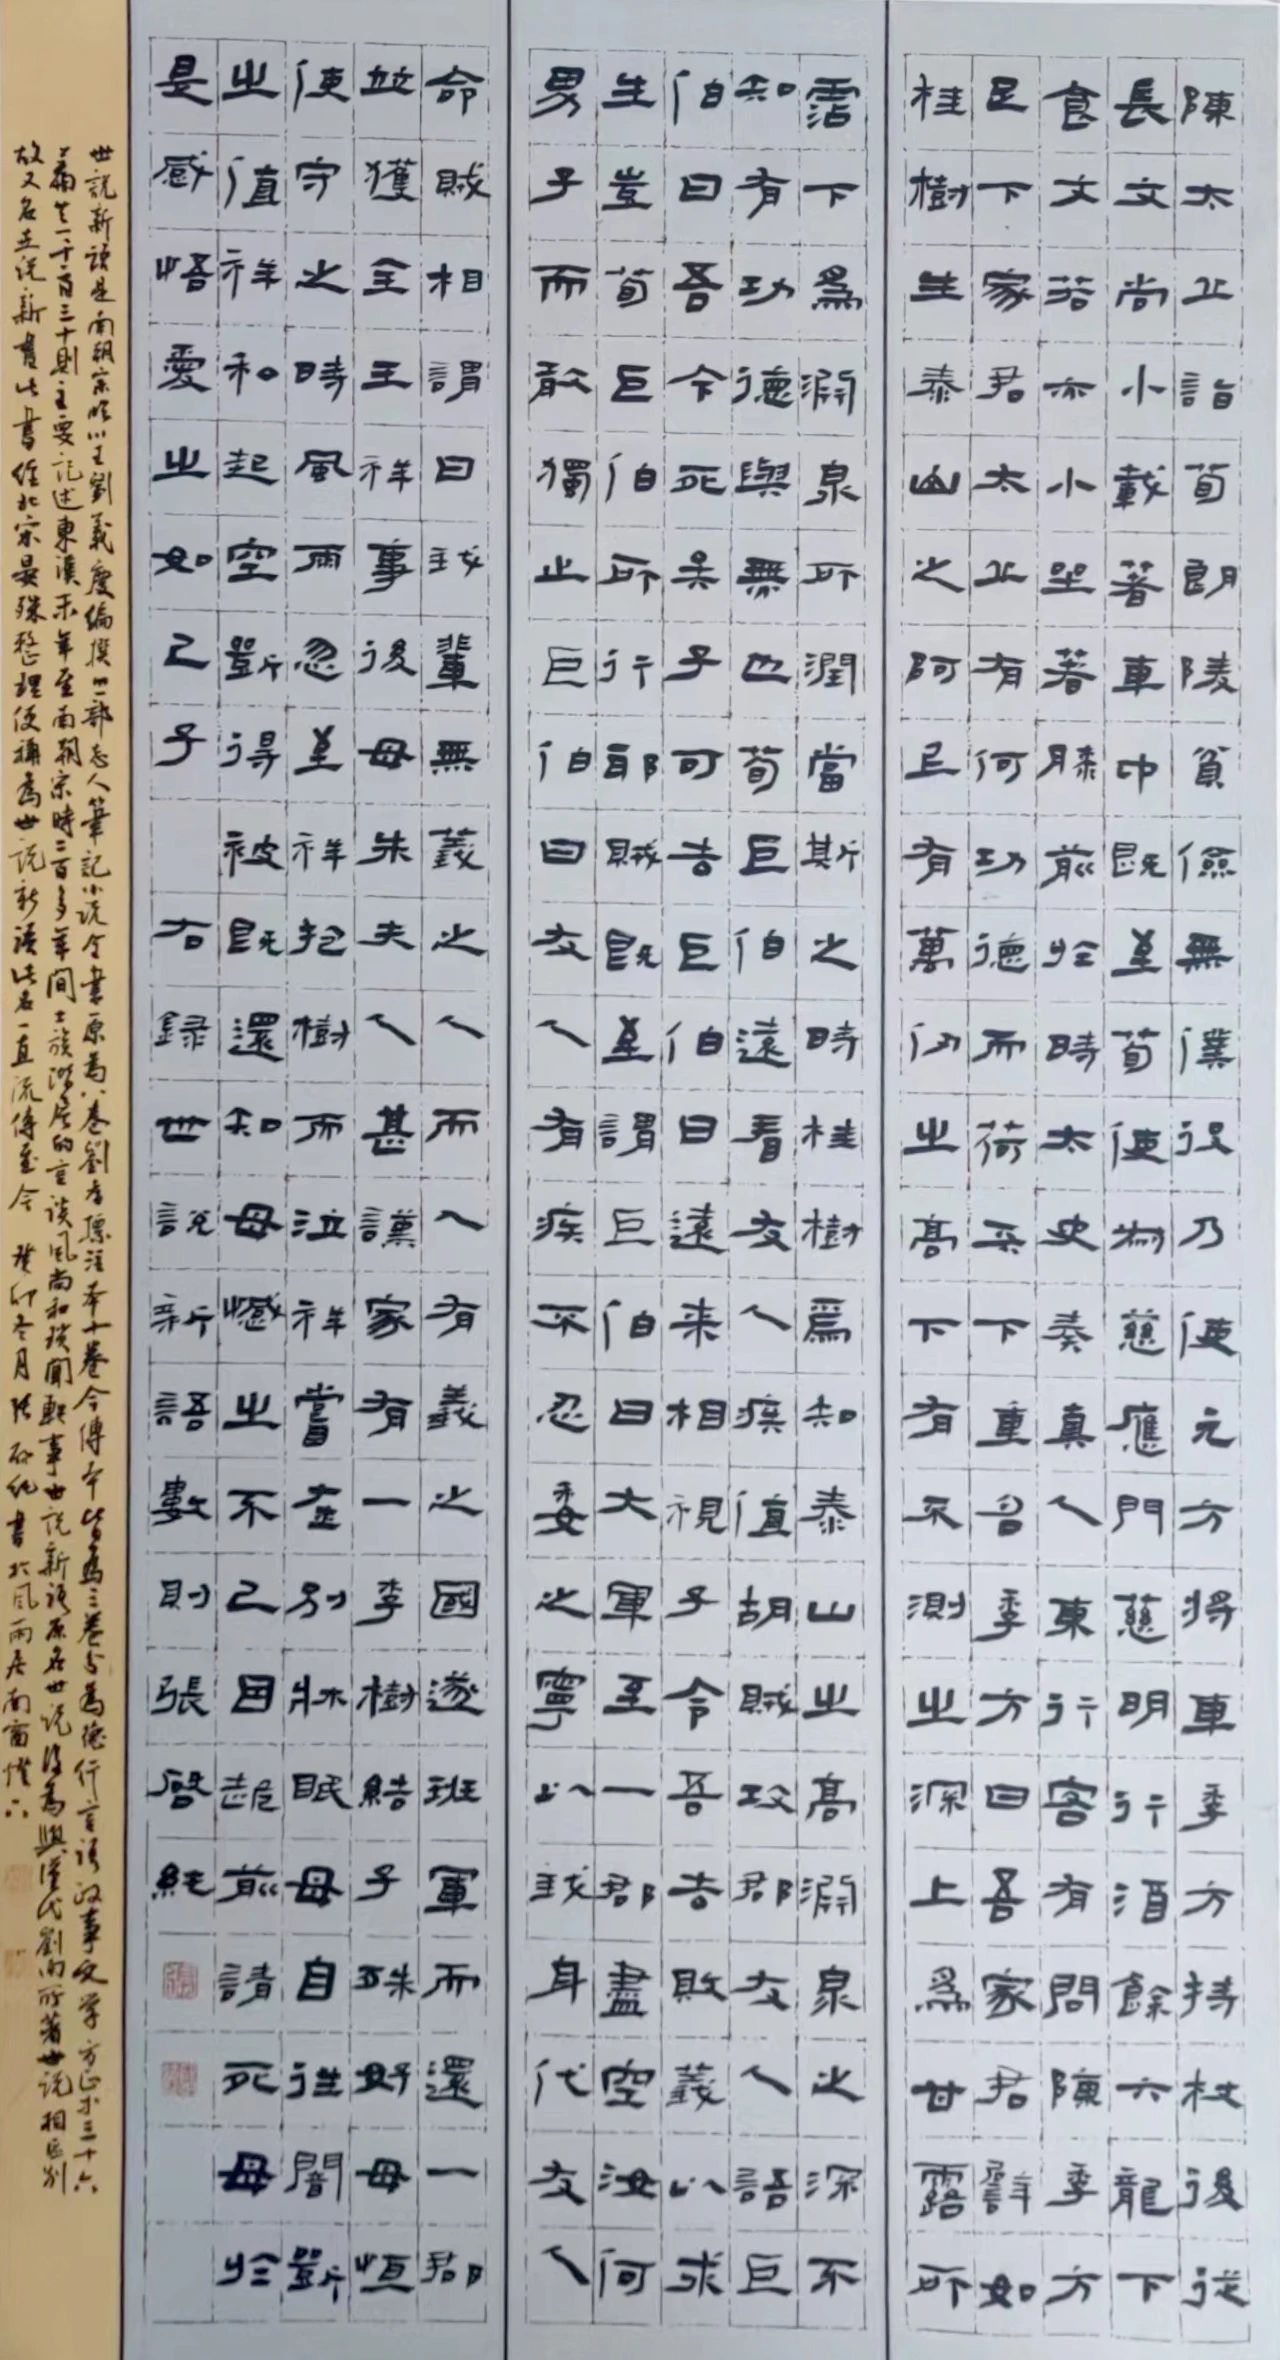 陳太丘詣荀朗陵貧儉無僕役乃使元方將車季方持杖後從
長文尚小載著車中既至荀使叔慈應門慈明行酒餘六龍下
食文若亦小坐著膝前於時太史奏真人東行客有問陳季方
足下家君太丘有何功德而荷天下重名季方曰吾家君譬如
桂樹生泰山之阿上有萬仞之高下有不測之深上為甘露所
霑下為淵泉所潤當斯之時桂樹焉知泰山之高淵泉之深不
知有功德與無也荀巨伯遠看友人疾值胡賊攻郡友人語巨
伯曰吾今死矣子可去巨伯曰遠来相視子令吾去敗義以求
生豈荀巨伯所行耶賊既至謂巨伯曰大軍至一郡盡空汝何
男子而敢獨止巨伯曰友人有疾不忍委之寧以我身代友人
命賊相謂曰我輩無義之人而入有義之國遂班軍而還一郡
並獲全王祥事後母朱夫人甚謹家有一李樹結子殊好母恒
使守之時風雨忽至祥抱樹而泣祥嘗在別牀眠母自往闇斫
之值祥私起空斫得被既還知母憾之不已因跪前請死母於
是感悟愛之如己子 右録世說新語數則張啓純
世説新語是南朝宋臨川王劉義慶編撰的一部志人筆記小説全書原為八卷劉孝標注本十卷今傳本皆為三卷分為德行言語政事文学方正等三十六
篇共一千一百三十則主要記述東漢末年至南朝宋時二百多年間士族階層的言談風尚和瑣聞軼事世説新語原名世説後為與漢代劉向所著世説相區别
故又名世説新書此書經北宋晏殊整理便稱為世説新語此名一直流傳至今 癸卯冬月張啟純書於風雨居南窗燈下